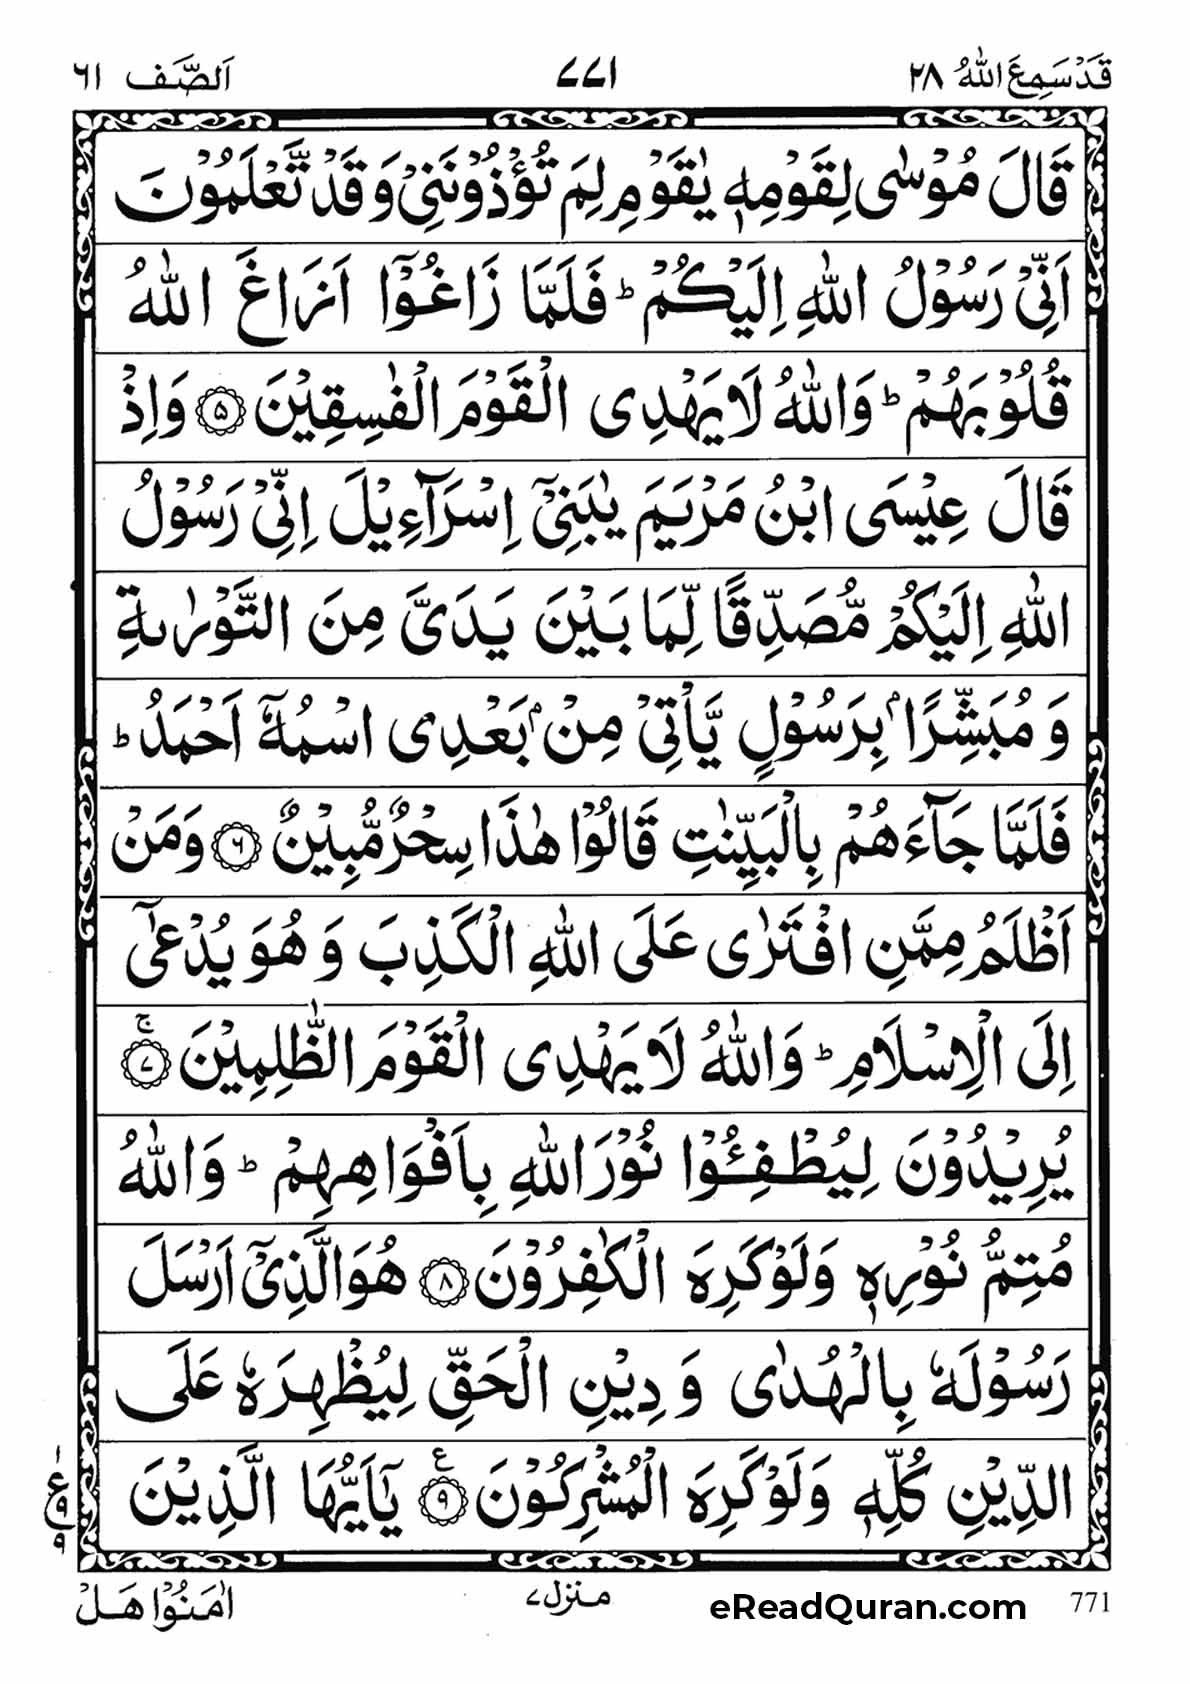 قَدْ سَمِعَ اللّٰهُ ٢٨ ٧٧١ اَلصَّف ٦١
قَالَ مُوْسٰى لِقَوْمِهٖ يٰقَوْمِ لِمَ تُؤْذُوْنَنِيْ وَقَدْ تَّعْلَمُوْنَ
اَنِّيْ رَسُوْلُ اللّٰهِ اِلَيْكُمْ ؕ فَلَمَّا زَاغُوْۤا اَزَاغَ اللّٰهُ
قُلُوْبَهُمْ ؕ وَاللّٰهُ لَا يَهْدِى الْقَوْمَ الْفٰسِقِيْنَ ۝٥ وَاِذْ
قَالَ عِيْسَى ابْنُ مَرْيَمَ يٰبَنِيْۤ اِسْرَآءِيْلَ اِنِّيْ رَسُوْلُ
اللّٰهِ اِلَيْكُمْ مُّصَدِّقًا لِّمَا بَيْنَ يَدَىَّ مِنَ التَّوْرٰىةِ
وَ مُبَشِّرًۢا بِرَسُوْلٍ يَّاْتِيْ مِنْۢ بَعْدِى اسْمُهٗۤ اَحْمَدُ ؕ
فَلَمَّا جَآءَهُمْ بِالْبَيِّنٰتِ قَالُوْا هٰذَا سِحْرٌ مُّبِيْنٌ ۝٦ وَمَنْ
اَظْلَمُ مِمَّنِ افْتَرٰى عَلَى اللّٰهِ الْكَذِبَ وَ هُوَ يُدْعٰۤى
اِلَى الْاِسْلَامِ ؕ وَاللّٰهُ لَا يَهْدِى الْقَوْمَ الظّٰلِمِيْنَ ۝٧ ۚ
يُرِيْدُوْنَ لِيُطْفِـُٔوْا نُوْرَ اللّٰهِ بِاَفْوَاهِهِمْ ؕ وَاللّٰهُ
مُتِمُّ نُوْرِهٖ وَلَوْ كَرِهَ الْكٰفِرُوْنَ ۝٨ هُوَ الَّذِيْۤ اَرْسَلَ
رَسُوْلَهٗ بِالْهُدٰى وَ دِيْنِ الْحَقِّ لِيُظْهِرَهٗ عَلَى
الدِّيْنِ كُلِّهٖ وَلَوْ كَرِهَ الْمُشْرِكُوْنَ ۝٩ ع يٰۤاَيُّهَا الَّذِيْنَ
١ ع ٩ ٩
اٰمَنُوْا هَلْ منزل ٧ eReadQuran.com 771